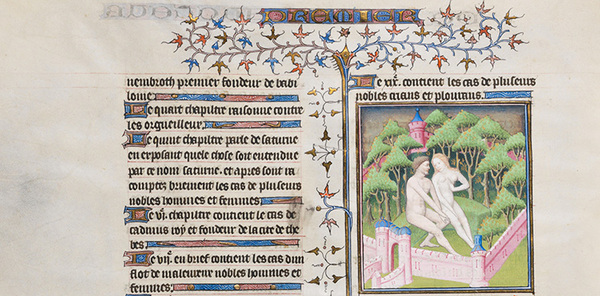 PREMIER
nembroth premier fondeur de babi
lonie
Le quart chapitre raisonne contre
les orgueilleux
Le quint chapitre parle de saturne
en exposant quele chose soit entendue
par ce nom saturne. et apres sont ra
comptez briefment les cas de plusieurs
nobles hommes et femmes
Le vje chapitre contient le cas de
cadmus roy et fondeur de la cite de the
bes
Le vije en brief contient les cas dun
flot de maleureux nobles hommes et
femmes
Le xije contient les cas de pluseurs
nobles crians et plourans